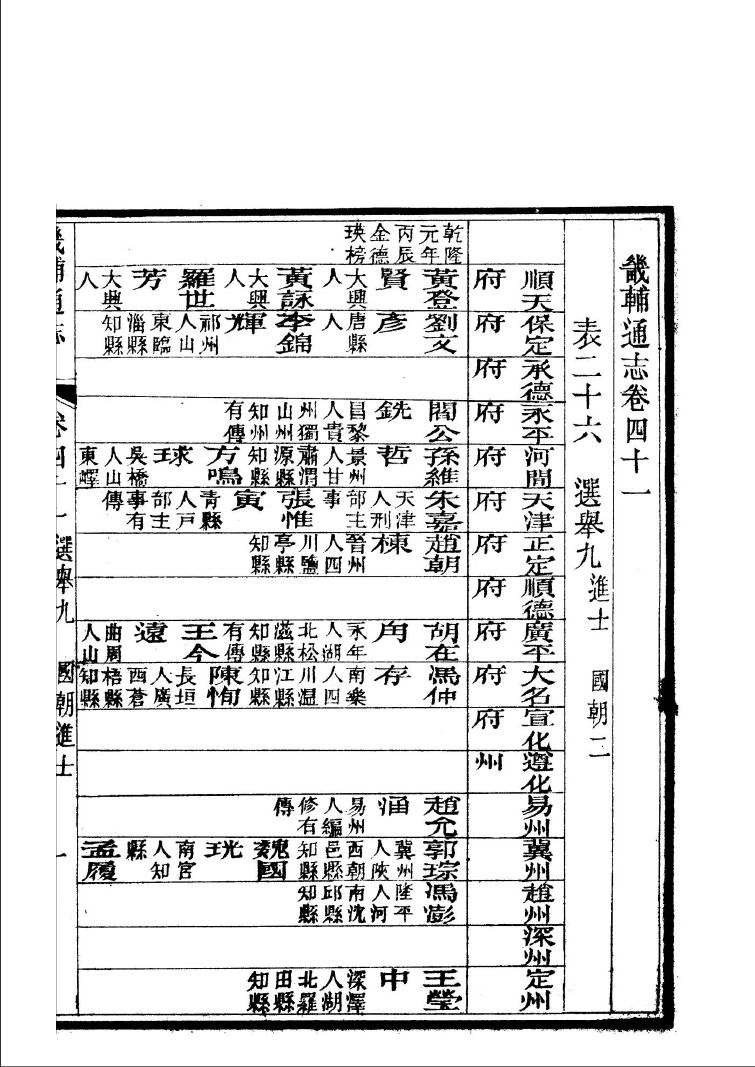 畿輔通志卷四十一
表二十六 選舉九 進士 國朝二
乾隆元年丙辰金德瑛榜
順天府 黃登賢 大興人 黃詠 大興人 羅世芳 大興人
保定府 劉文彥 唐縣人 李錦輝 祁州人山東臨淄縣知縣
承德府
永平府 閻公銑 昌黎人貴州獨山州知州有傳
河間府 孫維哲 景州人甘肅渭源縣知縣 方鳴球 吳橋人山東嶧
天津府 朱嘉 天津人刑部主事 張惟寅 青縣人戶部主事有傳
正定府 趙朝棟 晉州人四川鹽亭縣知縣
順德府
廣平府 胡在角 永年人湖北松滋縣知縣有傳 王今遠 曲周人山
大名府 馮仲存 南樂人四川溫江縣知縣 陳恂 長垣人廣西蒼梧縣知縣
宣化府
遵化州
易州 趙允涵 易州人編修有傳
冀州 郭琮 冀州人陝西朝邑縣知縣 魏國珖 南宮人知縣 孟履
趙州 馮澎 隆平人河南沈邱縣知縣
深州
定州 王瑩中 深澤人湖北羅田縣知縣
畿輔通志 卷四十一 選舉九 國朝進士 一